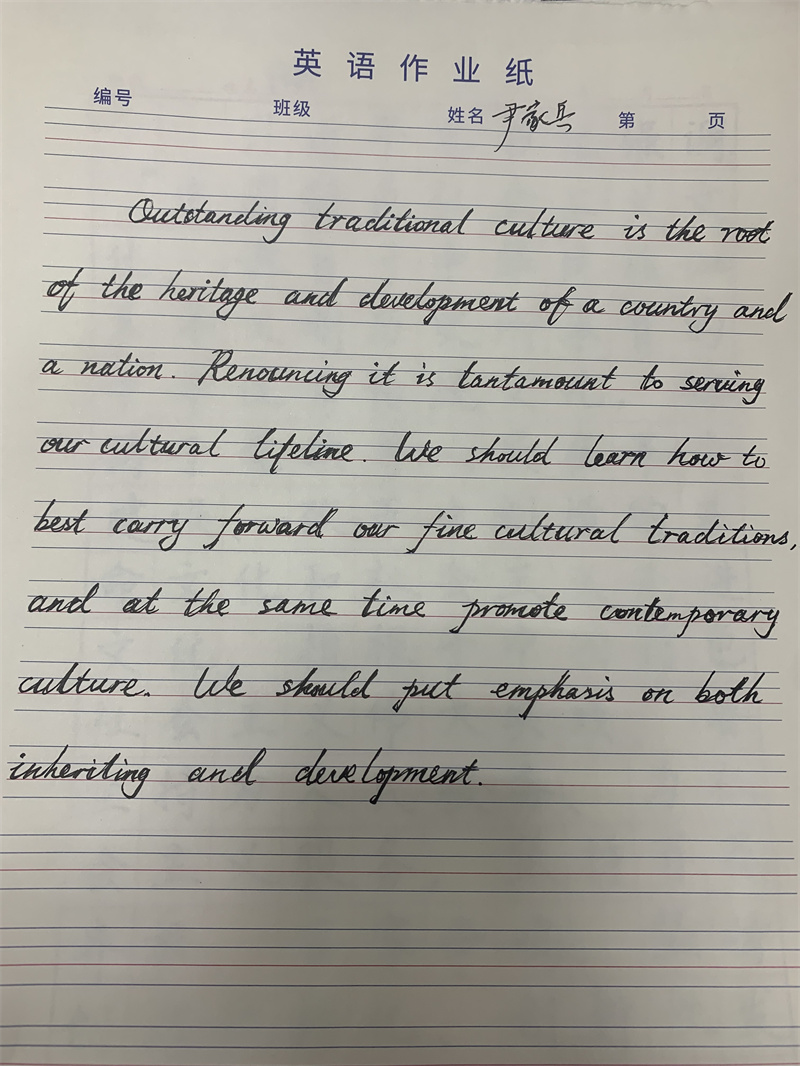 英语作业纸
编号 班级 姓名 尹家兵 第 页
Outstanding traditional culture is the root
of the heritage and development of a country and
a nation. Renouncing it is tantamount to serving
our cultural lifeline. We should learn how to
best carry forward our fine cultural traditions,
and at the same time promote contemporary
culture. We should put emphasis on both
inheriting and development.